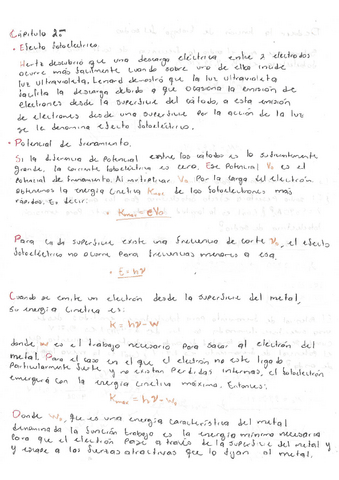 Capítulo 2:
• Efecto fotoeléctrico.
Hertz descubrió que una descarga eléctrica entre 2 electrodos
ocurre más fácilmente cuando sobre uno de ellos incide
luz ultravioleta. Lenard demostró que la luz ultravioleta
facilita la descarga debido a que ocasiona la emisión de
electrones desde la superficie del cátodo, a esta emisión
de electrones desde una superficie por la acción de la luz
se le denomina efecto fotoeléctrico.
• Potencial de frenamiento.
Si la diferencia de potencial entre los cátodos es lo suficientemente
grande, la corriente fotoeléctrica es cero. Ese Potencial V₀ es el
Potencial de frenamiento. Al multiplicar V₀ Por la carga del electrón
obtenemos la energía cinética Kmax de los fotoelectrones más
rápidos. Es decir:
• Kmax = eV₀
Para cada superficie existe una frecuencia de corte ν₀, el efecto
fotoeléctrico no ocurre para frecuencias menores a esa.
• E = hν
Cuando se emite un electrón desde la superficie del metal,
su energía cinética es:
K = hν - w
donde w es el trabajo necesario para sacar al electrón del
metal. Para el caso en el que el electrón no este ligado
Particularmente fuerte y no existan Perdidas internas, el fotoelectrón
emergerá con la energía cinética máxima. Entonces:
Kmax = hν - w₀
Donde w₀, que es una energía característica del metal
denominada la función trabajo es la energía mínima necesaria
para que el electrón pase a través de la superficie del metal y
y escape a las fuerzas atractivas que lo fijan al metal.